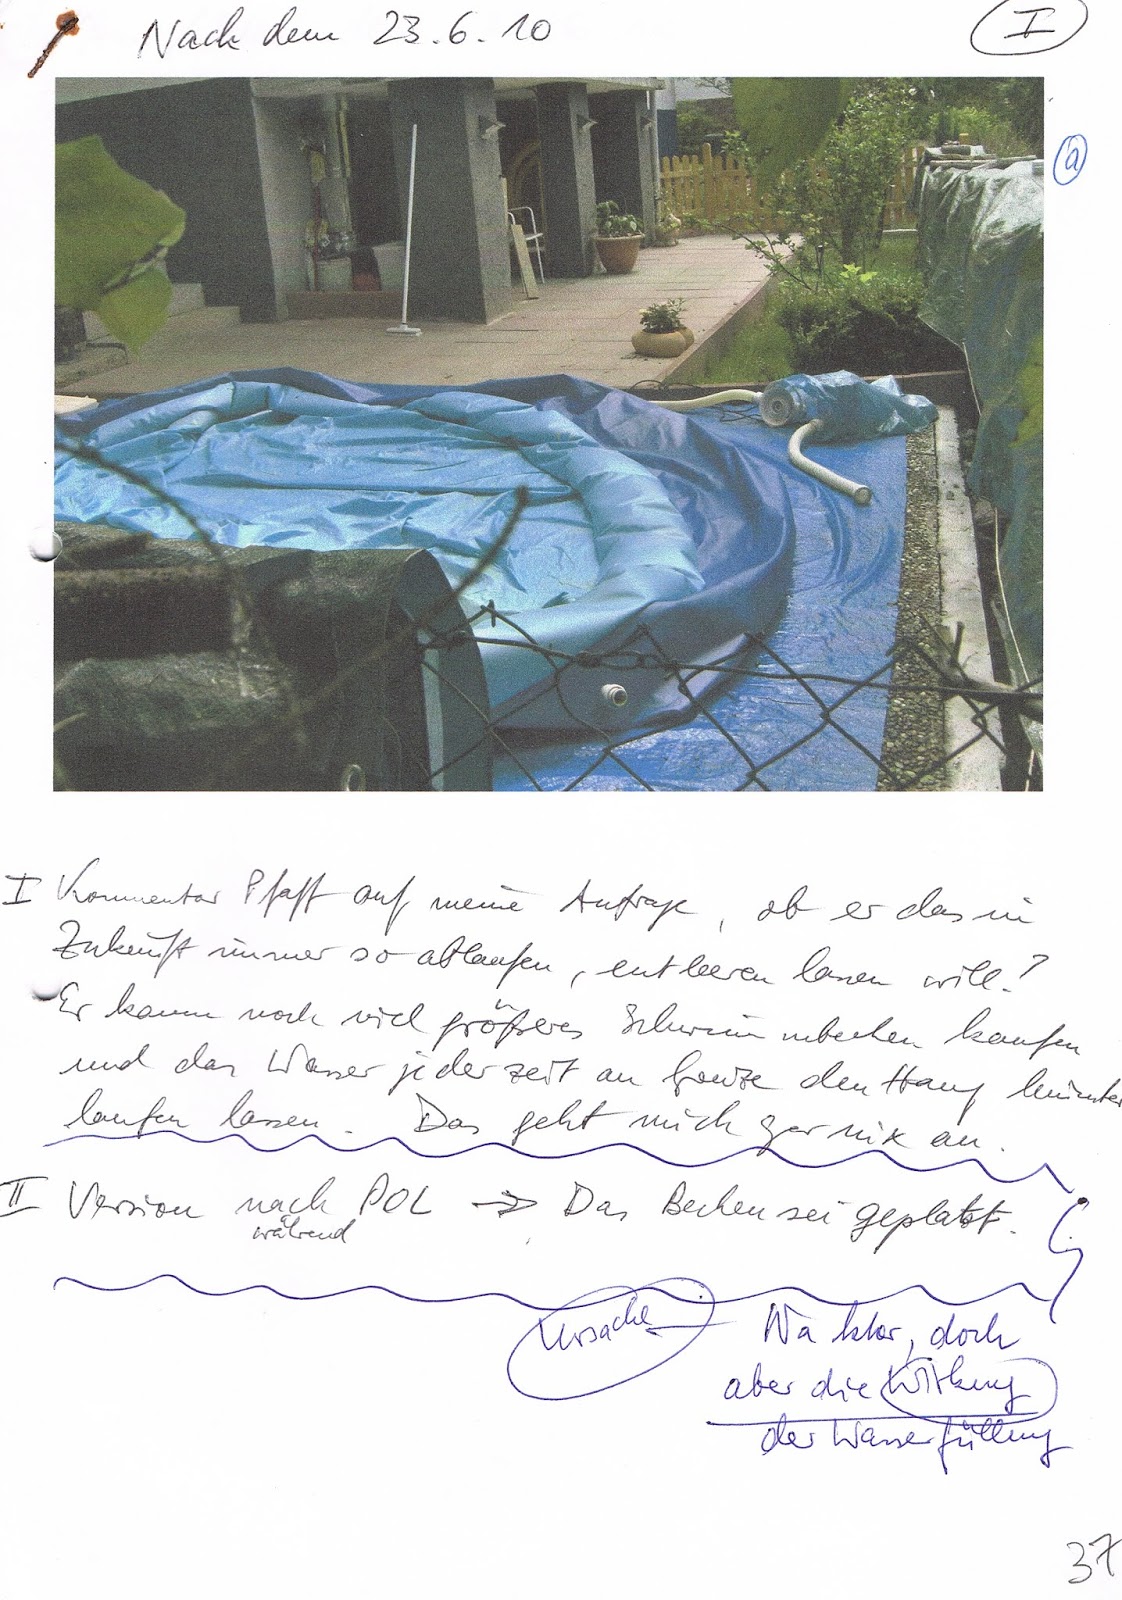 Nach dem 23.6.10
I
a
I Kommentar Pfaff auf meine Anfrage, ob er das in
Zukunft immer so ablaufen, entleeren lassen will?
Er kann noch viel größeres Schwimmbecken kaufen
und das Wasser jederzeit an Grenze den Hang hinunter
laufen lassen. Das geht mich gar nix an.
II Version nach POL → Das Becken sei geplatzt.
während
Ursache
Na klar, doch
aber die Wirkung
der Wasserfüllung
37